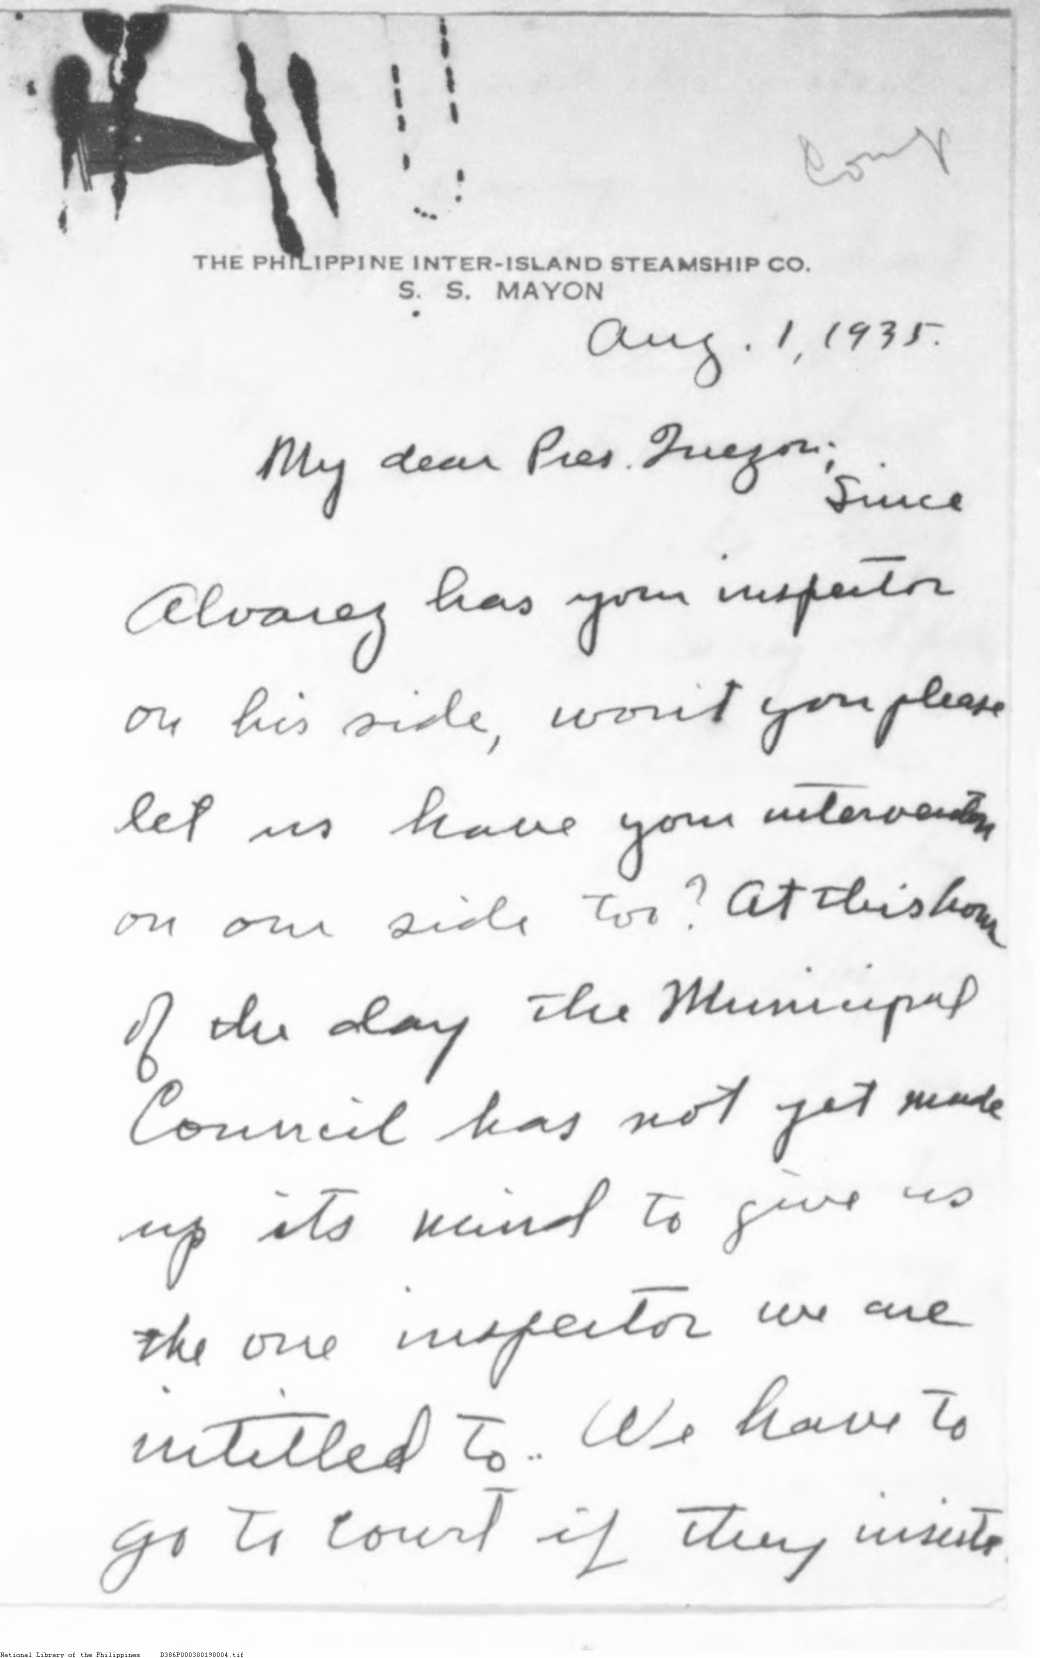 THE PHILIPPINE INTER-ISLAND STEAMSHIP CO.
S. S. MAYON
Aug. 1, 1935.
My dear Pres. Quezon;
Since
Alvarez has your inspector
on his side, won't you please
let us have your intervention
on our side too? At this hour
of the day the Municipal
Council has not yet made
up its mind to give us
the one inspector we are
intitled to.. We have to
go to court if they insists.
National Library of the Philippines D386P000380198004.tif